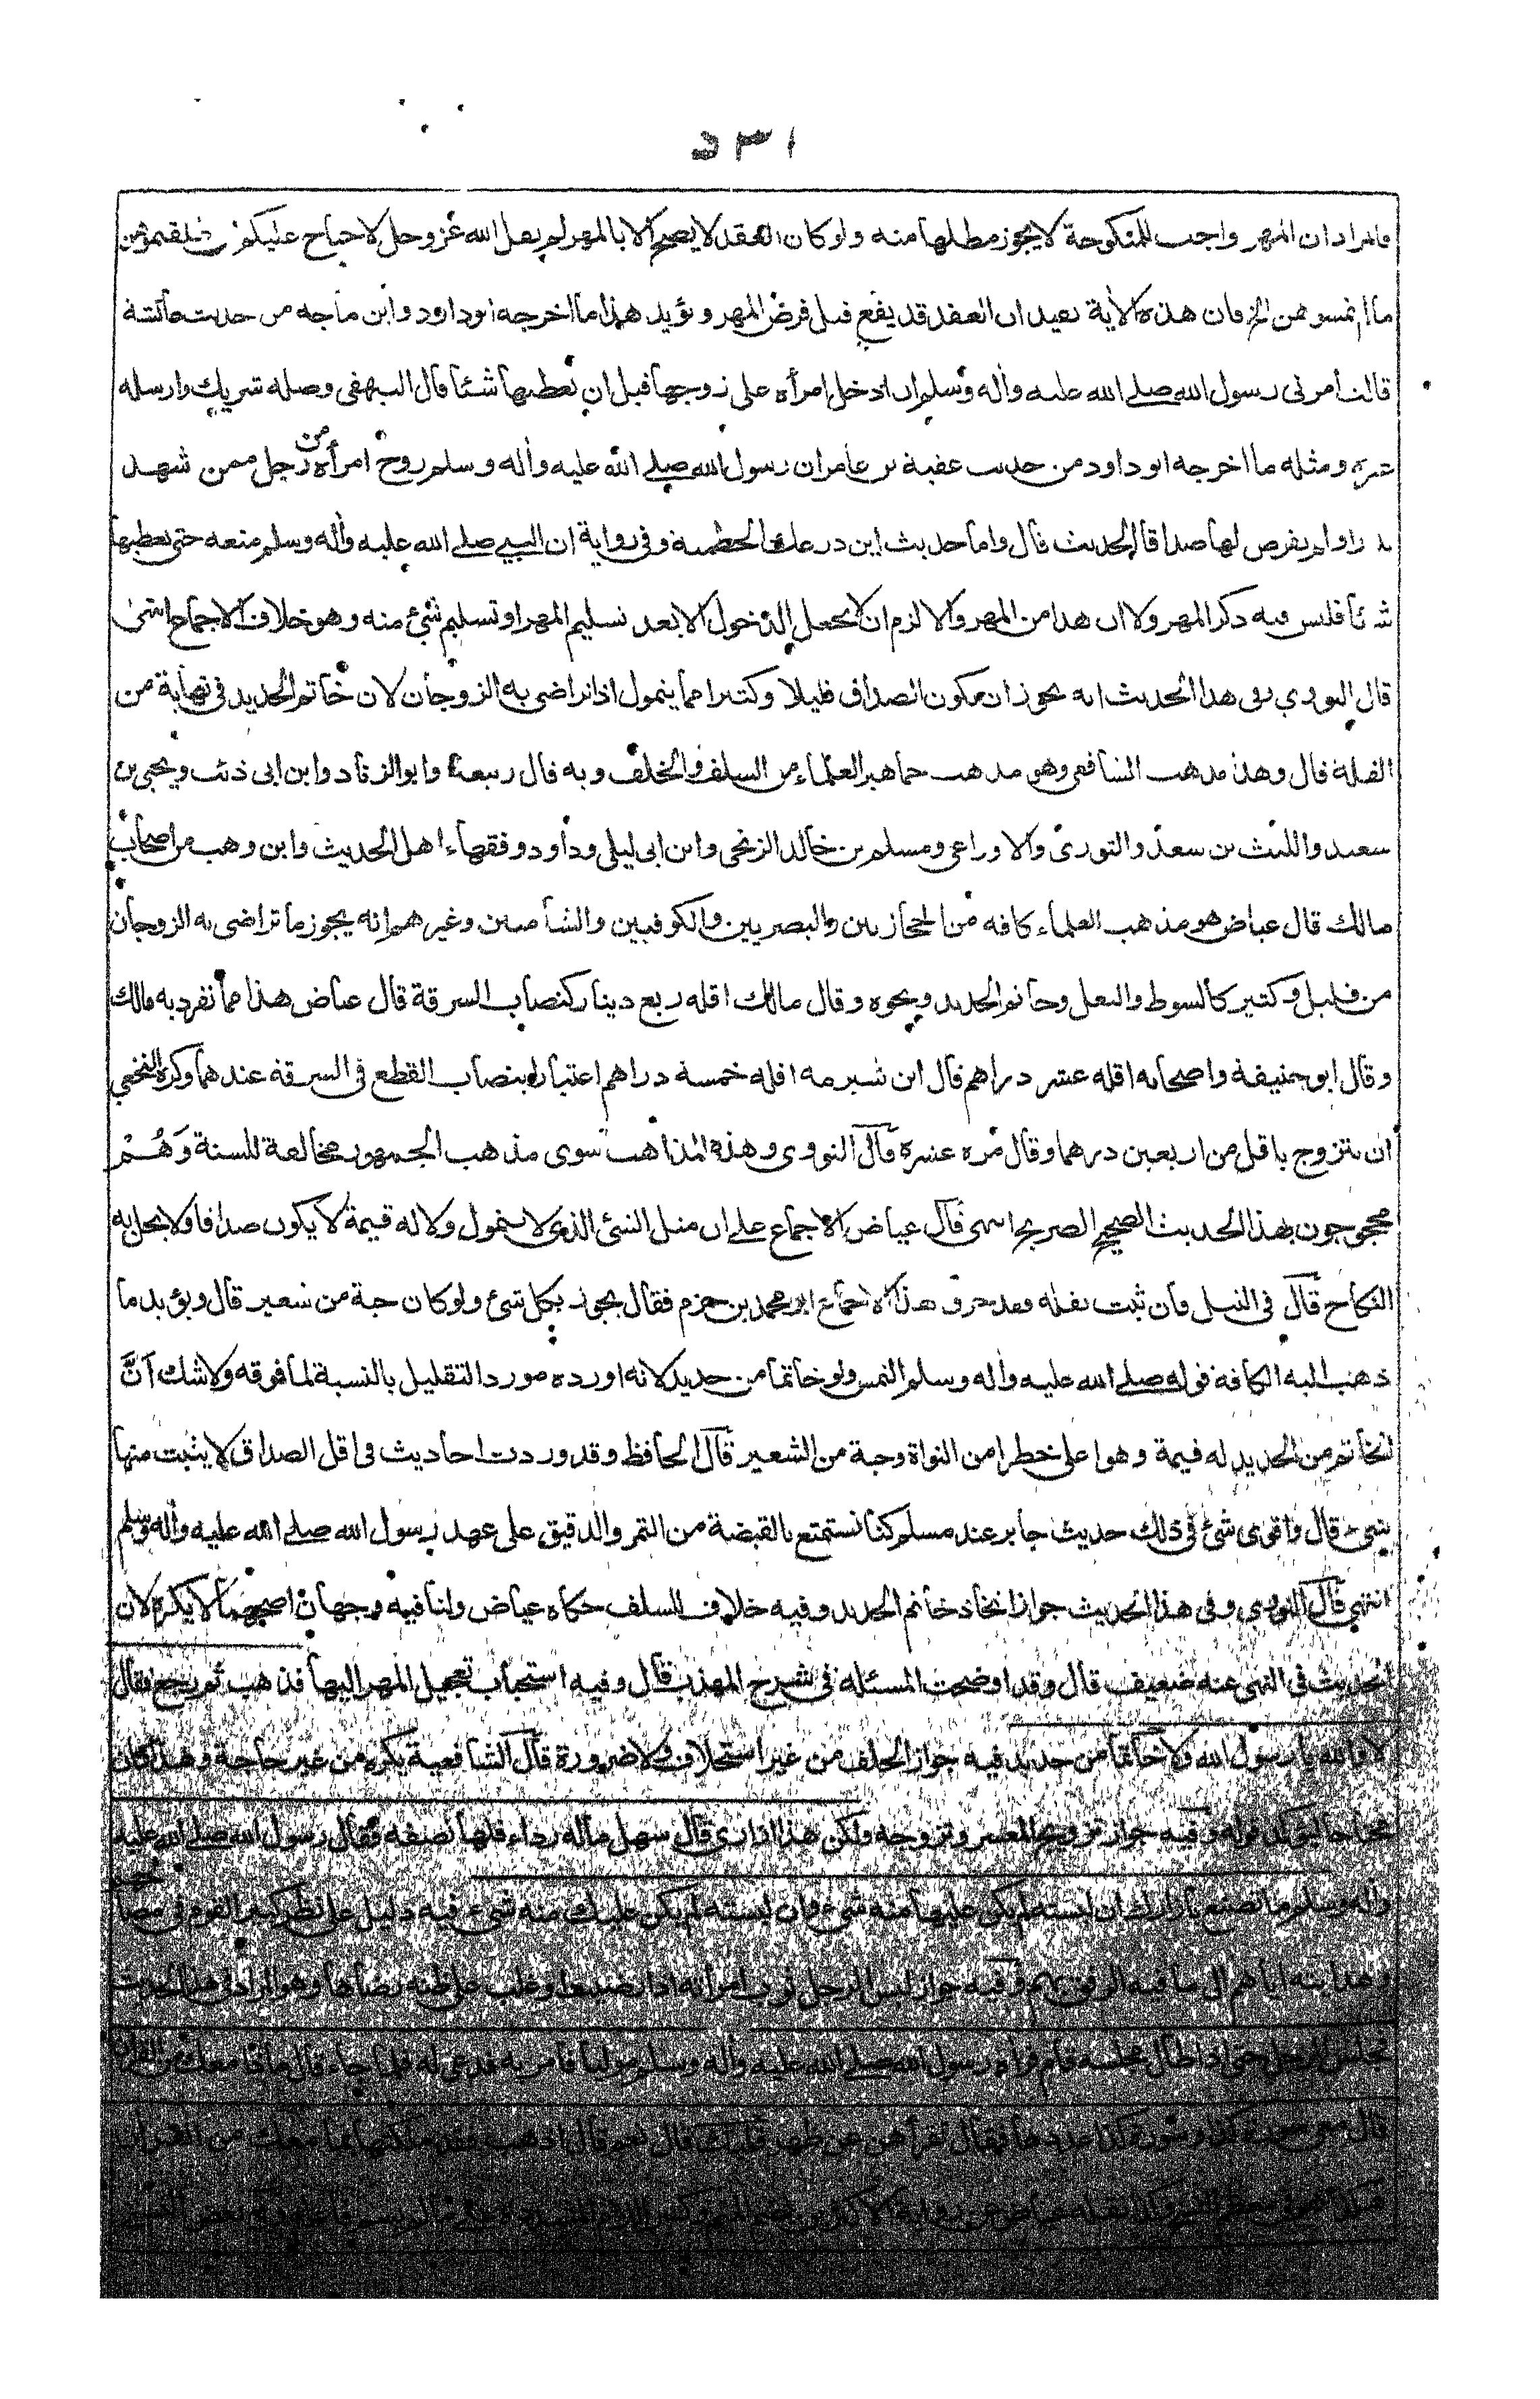 ٥٣١
فالمراد ان المهر واجب للمنكوحة لا يجوز مطلها منه ولو كان العقد لا يصح الا بالمهر لم يقل الله عز وجل لا جناح عليكم ان طلقتموهن
ما لم تمسوهن الخ فان هذه الاية تفيد ان العقد قد يقع قبل فرض المهر ويؤيد هذا ما اخرجه ابو داود وابن ماجه من حديث عائشة
قالت امرني رسول الله صلے الله عليه وأله وسلم ان ادخل امرأة على زوجها قبل ان يعطيها شئا قال البيهقى وصله شريك وارسله
غيره ومثله ما اخرجه ابو داود من حديث عقبة بن عامر ان رسول الله صلے الله عليه وأله وسلم زوج امرأة من رجل ممن شهد
بدرا ولم يفرض لها صداقا الحديث قال واما حديث ابن درع على الحطمية وفى رواية ان النبي صلے الله عليه وأله وسلم منعه حتى يعطيها
شئا فليس فيه ذكر المهر ولا ان هذا من المهر والا لزم ان لا يجعل الدخول الا بعد تسليم المهر او تسليم شئ منه وهو خلاف الاجماع انتهى
قال النووي وفى هذا الحديث انه يجوز ان يكون الصداق قليلا وكثيرا مما يتمول اذا تراضى به الزوجان لان خاتم الحديد فى نهاية من
القلة قال وهذا مذهب الشافعى وهو مذهب جماهير العلماء من السلف والخلف وبه قال ربيعة وابو الزناد وابن ابى ذئب ويحيى بن
سعيد والليث بن سعد والثورى والاوزاعى ومسلم بن خالد الزنجى وابن ابى ليلى وداود وفقهاء اهل الحديث وابن وهب من اصحاب
مالك قال عياض هو مذهب العلماء كافة من الحجازيين والبصريين والكوفيين والشاميين وغيرهم انه يجوز ما تراضى به الزوجان
من قليل وكثير كالسوط والنعل وخاتم الحديد ونحوه وقال مالك اقله ربع دينار كنصاب السرقة قال عياض هذا مما تفرد به مالك
وقال ابو حنيفة واصحابه اقله عشر دراهم قال ابن شبرمه اقله خمسة دراهم اعتبارا بنصاب القطع فى السرقة عندهما وكره النخعي
ان يتزوج باقل من اربعين درهما وقال مرة عشرة قال النووى وهذه المذاهب سوى مذهب الجمهور مخالفة للسنة وَهُمْ
محجوجون بهذا الحديث الصحيح الصريح انتهى قال عياض الاجماع على ان مثل الشئ الذى لا يتمول ولا له قيمة لا يكون صداقا ولا يحل به
النكاح قال فى النيل فان ثبت نقله فقد خرق هذا الاجماع ابو محمد بن حزم فقال يجوز بكل شئ ولو كان حبة من شعير قال ويؤيد ما
ذهب اليه الكافة قوله صلے الله عليه وأله وسلم التمس ولو خاتما من حديد لانه اورده مورد التقليل بالنسبة لما فوقه ولا شك اَنَّ
الخاتم من الحديد له قيمة وهو اعلى خطرا من النواة وحبة من الشعير قال الحافظ وقد وردت احاديث فى اقل الصداق لا يثبت منها
شئ قال واقوى شئ فى ذلك حديث جابر عند مسلم كنا نستمتع بالقبضة من التمر والدقيق على عهد رسول الله صلے الله عليه وأله وسلم
انتهي قال النووي وفى هذا الحديث جواز اتخاذ خاتم الحديد وفيه خلاف للسلف حكاه عياض ولنا فيه وجهان اصحهما لا يكره لان
الحديث فى النهى عنه ضعيف قال وقد اوضحت المسئلة فى شرح المهذب قال وفيه استحباب تعجيل المهر اليها فذهب ثم رجع فقال
لا والله يا رسول الله ولا خاتما من حديد فيه جواز الحلف من غير استحلاف ولا ضرورة قال الشافعية يكره من غير حاجة وهذا كان
محتاجا ليؤكد قوله وفيه جواز تزويج المعسر وتزوجه ولكن هذا ازارى قال سهل ماله رداء فلها نصفه فقال رسول الله صلے الله عليه
وأله وسلم ما تصنع بازارك ان لبسته لم يكن عليها منه شئ وان لبسته لم يكن عليك منه شئ فيه دليل على نظر كبير القوم فى مصالحهم
وهدايته اياهم الى ما فيه الرفق بهم وفيه جواز لبس الرجل ثوب امرأته اذا رضيت او غلب على ظنه رضاها وهو المراد فى هذا الحديث
فجلس الرجل حتى اذا طال مجلسه قام فراه رسول الله صلے الله عليه وأله وسلم موليا فأمر به فدعى له فلما جاء قال ماذا معك من القران
قال معى سورة كذا وسورة كذا عددها فقال تقرأهن عن ظهر قلبك قال نعم قال اذهب فقد ملكتها بما معك من القران